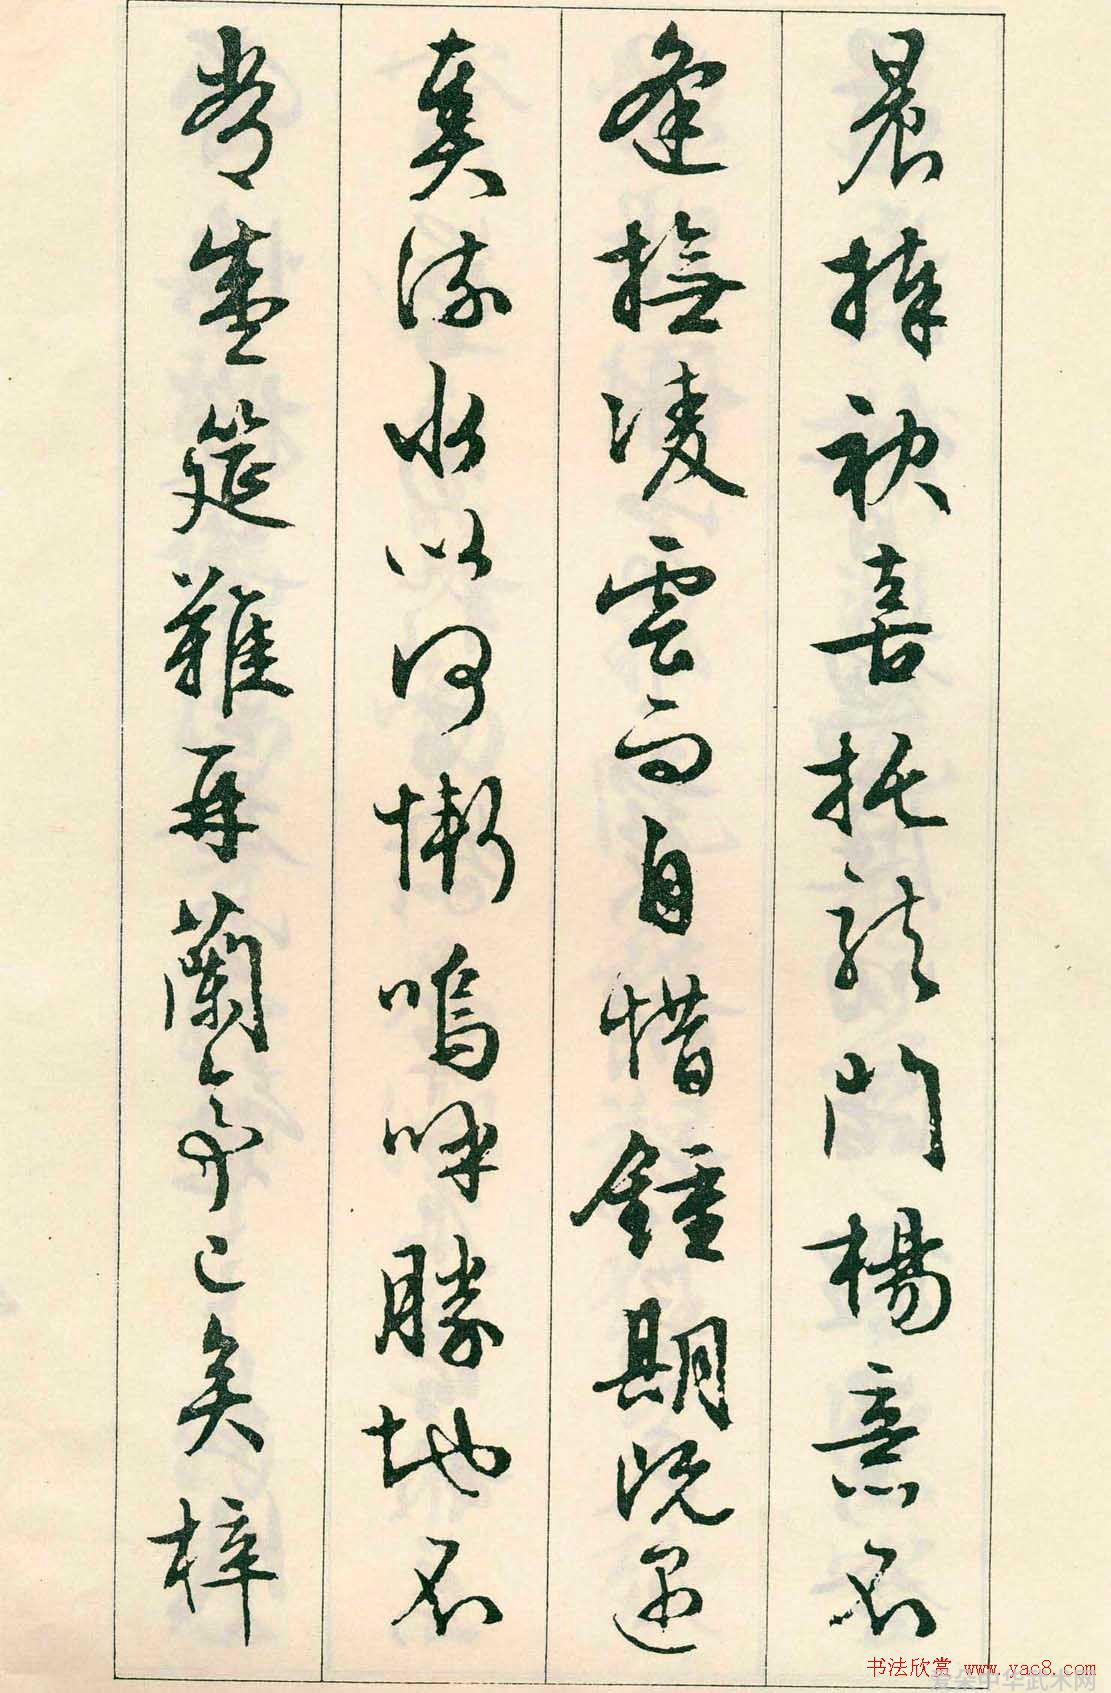 晨捧袂喜托龍門楊意不
逢撫凌雲而自惜鍾期既遇
奏流水以何慚嗚呼勝地不
常盛筵難再蘭亭已矣梓
书法欣赏 www.yac8.com
爱朵中华武术网